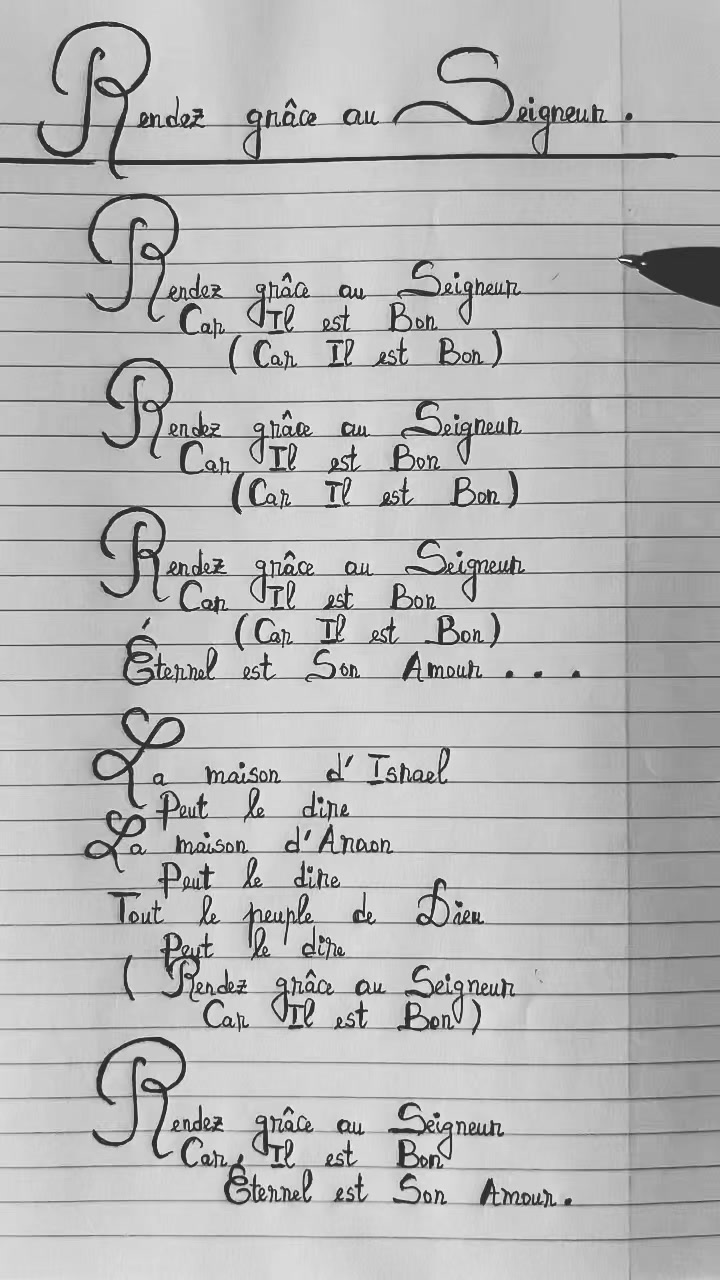 Rendez grâce au Seigneur.
Rendez grâce au Seigneur
Car Il est Bon
(Car Il est Bon)
Rendez grâce au Seigneur
Car Il est Bon
(Car Il est Bon)
Rendez grâce au Seigneur
Car Il est Bon
(Car Il est Bon)
Éternel est Son Amour...
La maison d'Israel
Peut le dire
La maison d'Araon
Peut le dire
Tout le peuple de Dieu
Peut le dire
(Rendez grâce au Seigneur
Car Il est Bon)
Rendez grâce au Seigneur
Car Il est Bon
Éternel est Son Amour.